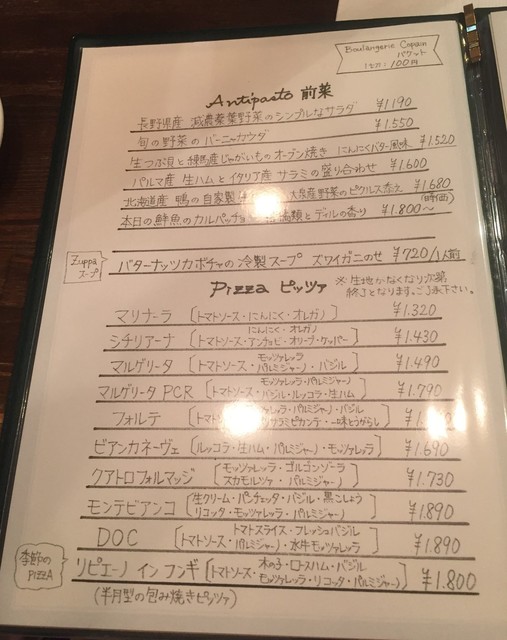 Boulangerie Copain
バケット
1コ: 100円
Antipasto 前菜
長野県産 減農薬葉野菜のシンプルなサラダ ¥1190
旬の野菜のバーニャカウダ ¥1.550
生つぶ貝と練馬産じゃがいものオーブン焼き にんにくバター風味 ¥1.520
パルマ産 生ハムとイタリア産 サラミの盛り合わせ ¥1.600
北海道産 鴨の自家製 大泉産野菜のピクルス添え ¥1.680
(時価)
本日の鮮魚のカルパッチョ 類とディルの香り ¥1.800〜
Zuppa スープ
バターナッツカボチャの冷製スープ ズワイガニのせ ¥720/1人前
Pizza ピッツァ
※生地がなくなり次第
終了となります。ご了承下さい。
マリナーラ [トマトソース・にんにく・オレガノ] ¥1.320
シチリアーナ [にんにく・オレガノ
トマトソース・アンチョビ・オリーブ・ケッパー] ¥1.430
マルゲリータ [モッツァレッラ
トマトソース・パルミジャーノ・バジル] ¥1.490
マルゲリータ PCR [モッツァレッラ・パルミジャーノ
トマトソース・バジル・ルッコラ・生ハム] ¥1.790
フォルテ [モッツァレッラ・パルミジャーノ・バジル
サラミピカンテ・一味とうがらし]
ビアンカネーヴェ [ルッコラ・生ハム・パルミジャーノ・モッツァレッラ] ¥1.690
クアトロフォルマッジ [モッツァレッラ・ゴルゴンゾーラ
スカモルツァ・パルミジャーノ] ¥1.730
モンテビアンコ [生クリーム・パンチェッタ・バジル・黒こしょう
リコッタ・モッツァレッラ・パルミジャーノ] ¥1.890
DOC [トマトスライス・フレッシュバジル
トマトソース・パルミジャーノ・水牛モッツァレッラ] ¥1.890
季節の PIZZA
リピエーノ イン フンギ [木の子・ロースハム・バジル
トマトソース・モッツァレッラ・リコッタ・パルミジャーノ] ¥1.800
(半月型の包み焼きピッツァ)